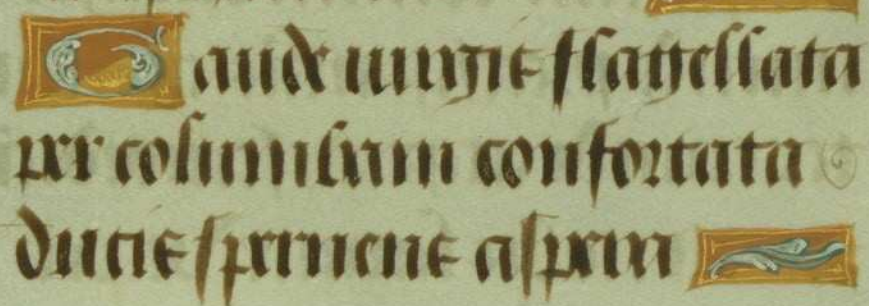 Gaude uirgis flagellata
per columbam confortata
ducis spernens aspera